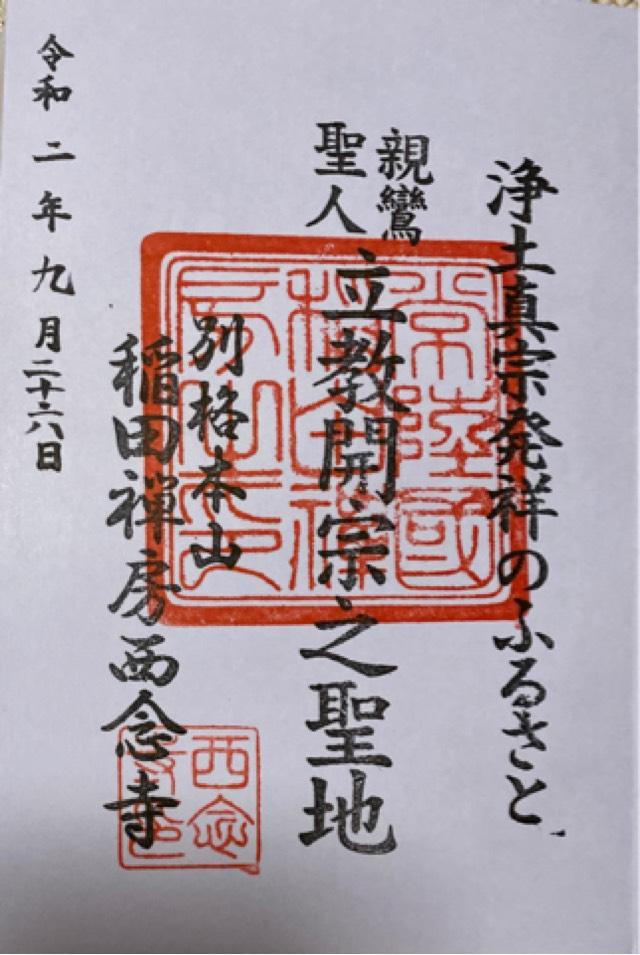 浄土真宗発祥のふるさと
親鸞
聖人
立教開宗之聖地
別格本山
稲田禅房西念寺
令和二年九月二十六日
常陸國
稲田禅
房之印
西念
寺印